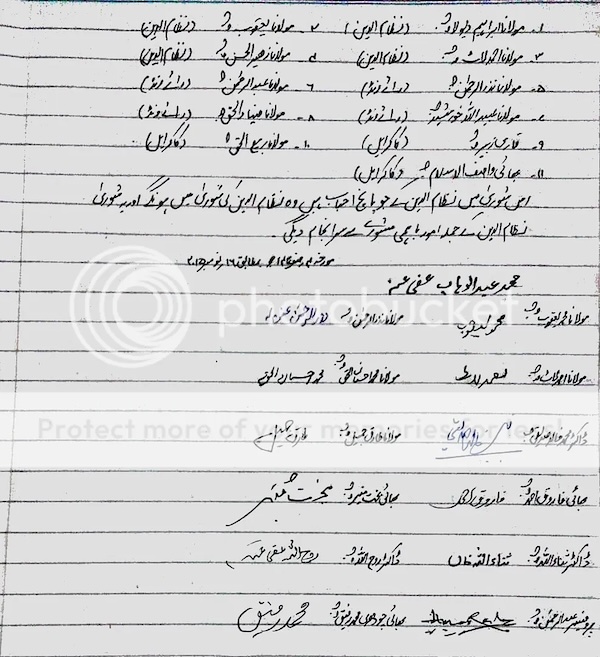 ۱۔ مولانا ابراہیم دیولا صاحب (نظام الدین) ۲۔ مولانا یعقوب صاحب (نظام الدین)
۳۔ مولانا احمد لاٹ صاحب (نظام الدین) ۴۔ مولانا زہیر الحسن صاحب (نظام الدین)
۵۔ مولانا نذر الرحمن صاحب (رائے ونڈ) ۶۔ مولانا عبد الرحمن صاحب (رائے ونڈ)
۷۔ مولانا عبید اللہ خورشید صاحب (رائے ونڈ) ۸۔ مولانا ضیاء الحق صاحب (رائے ونڈ)
۹۔ قاری زبیر صاحب (کاکرایل) ۱۰۔ مولانا ربیع الحق صاحب (کاکرایل)
۱۱۔ بھائی واصف الاسلام صاحب (کاکرایل)
اس شوریٰ میں نظام الدین کے جو پانچ احباب ہیں وہ نظام الدین کی شوریٰ میں ہونگے اور یہ شوریٰ
نظام الدین کے جملہ امور باہمی مشورے سے سرانجام دیگی۔
مطابق ۱۶ نومبر ۲۰۱۵
محمد عبد الوہاب عفی عنہ
مولانا محمد یعقوب صاحب محمد یعقوب مولانا نذر الرحمن صاحب نذر الرحمن عفی عنہ
مولانا احمد لاٹ صاحب احمد لاٹ مولانا محمد احسان الحق صاحب محمد احسان الحق
ڈاکٹر محمد خالد صدیقی صاحب مولانا طارق جمیل صاحب طارق جمیل
بھائی فاروق احمد صاحب فاروق احمد بھائی بخت منیر صاحب بخت منیر
ڈاکٹر ثناء اللہ صاحب ثناء اللہ خان ڈاکٹر روح اللہ صاحب روح اللہ عفی عنہ
پروفیسر عبد الرحمن صاحب بھائی چوہدری محمد رفیق صاحب محمد رفیق
photobucket
Protect more of your memories for less!